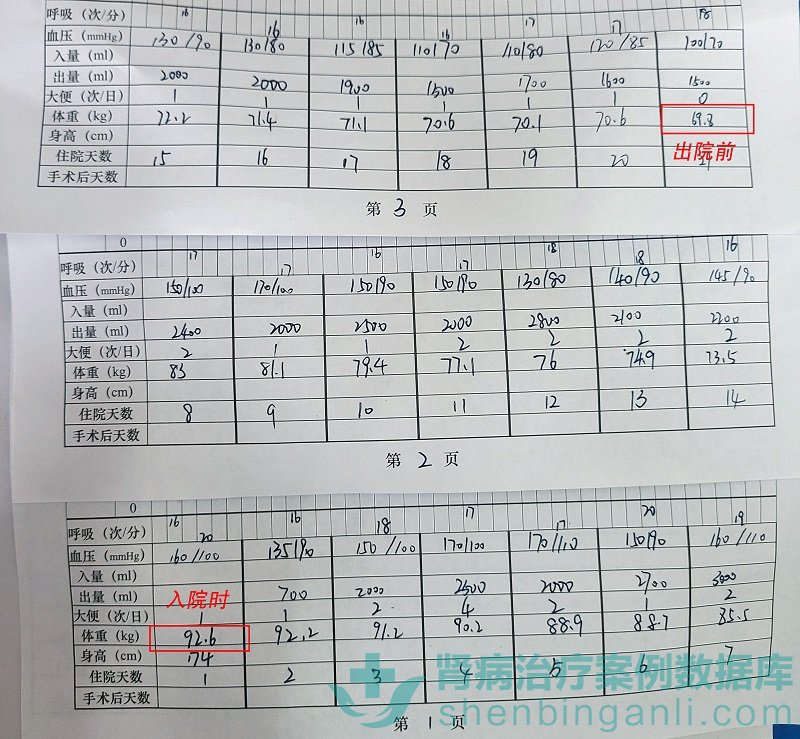 呼吸（次/分） 16 16 16 16 17 17 18
血压（mmHg） 130/90 130/80 115/85 110/70 110/80 120/85 100/70
入量（ml）
出量（ml） 2000 2000 1900 1500 1700 1600 1500
大便（次/日） 1 1 1 1 1 1 0
体重（kg） 72.2 71.4 71.1 70.6 70.1 70.6 69.8
身高（cm） 出院前
住院天数 15 16 17 18 19 20 21
手术后天数
第 3 页
0
呼吸（次/分） 17 17 16 17 18 18 16
血压（mmHg） 150/100 170/100 150/90 150/90 130/80 140/90 145/90
入量（ml）
出量（ml） 2400 2000 2500 2000 2800 2100 2200
大便（次/日） 2 1 1 2 2 2 2
体重（kg） 83 81.1 79.4 77.1 76 74.9 73.5
身高（cm）
住院天数 8 9 10 11 12 13 14
手术后天数
第 2 页
0
呼吸（次/分） 16 20 16 18 17 17 20 19
血压（mmHg） 160/100 135/90 150/100 170/100 170/110 150/90 160/110
入量（ml） 入院时
出量（ml） 700 2000 2500 2000 2700 3000
大便（次/日） 1 1 2 4 2 1 2
体重（kg） 92.6 92.2 91.2 90.2 88.9 88.7 85.5
身高（cm） 174
住院天数 1 2 3 4 5 6 7
手术后天数
第 1 页
肾病治疗案例数据库
shenbinganli.com